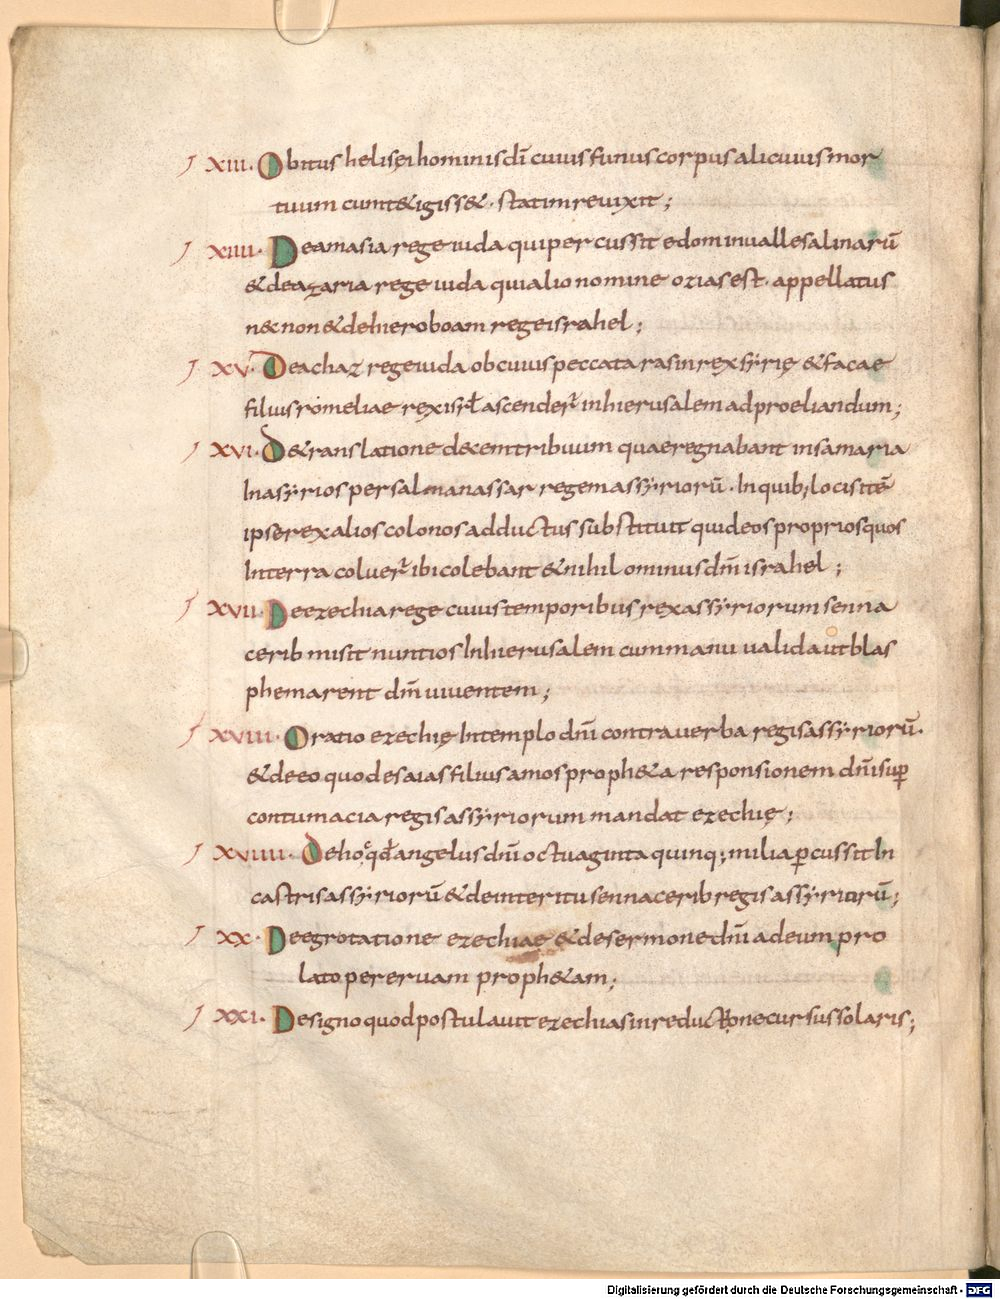 XIII. Obitus helisei hominis dī cuius funus corpus alicuius mor
tuum cum t&igiss& · statim reuixit ;
XIIII. De amasia rege iuda qui percussit edom in ualle salinarū
& de azaria rege iuda qui alio nomine ozias est · appellatus
n&non & de hieroboam rege israhel ;
XV. De achaz rege iuda ob cuius peccata rasin rex syrię & facae
filius romeliae rex isrl̄ ascender̄ in hierusalem ad proeliandum ;
XVI. D&ranslatione decem tribuum quae regnabant in samaria
In asyrios per salmanassar regem assyriorū · In quib; locis itē
ipse rex alios colonos adductus substituit qui deos proprios quos
In terra coluer̄ ibi colebant & nihilominus dn̄m israhel ;
XVII. De ezechia rege cuius temporibus rex assyriorum senna
cerib misit nuntios In hierusalem cum manu ualida ut blas
phemarent dn̄m uiuentem ;
XVIII. Oratio ezechię In templo dn̄i contra uerba regis assyriorū.
& de eo quod esaias filius amos proph&a responsionem dn̄i sup̄
contumacia regis assyriorum mandat ezechię ;
XVIIII. De hoc qd̄ angelus dn̄i octuaginta quinq; milia ꝑcussit In
castris assyriorū & de interitu sennacerib regis assyriorū ;
XX. De egrotatione ezechiae & de sermone dn̄i ad eum pro
lato per eruam proph&am ;
XXI. De signo quod postulauit ezechias in reductione cursus solaris ;
Digitalisierung gefördert durch die Deutsche Forschungsgemeinschaft - DFG